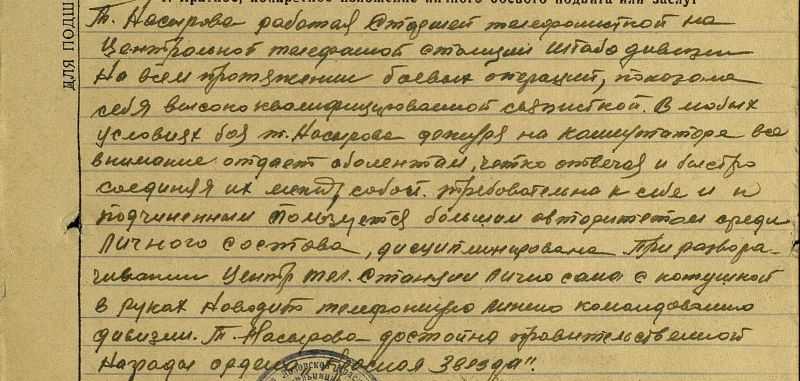 1. Краткое, конкретное изложение личного боевого подвига или заслуг
ДЛЯ ПОДШ
Т. Насырова работая Старшей телефонисткой на
Центральной телефонной станции Штаба дивизии
На всем протяжении боевых операций, показала
себя высококвалифицированной связисткой. В любых
условиях боя т. Насырова дежуря на коммутаторе все
внимание отдает абонентам, четко отвечая и быстро
соединяя их между собой. Требовательна к себе и к
подчиненным Пользуется большим авторитетом среди
Личного состава, дисциплинирована При развора-
чивании Центр тел. Станции лично сама с катушкой
в руках Наводит телефонную линию командованию
дивизии. Т. Насырова достойна правительственной
Награды ордена "Красная Звезда".